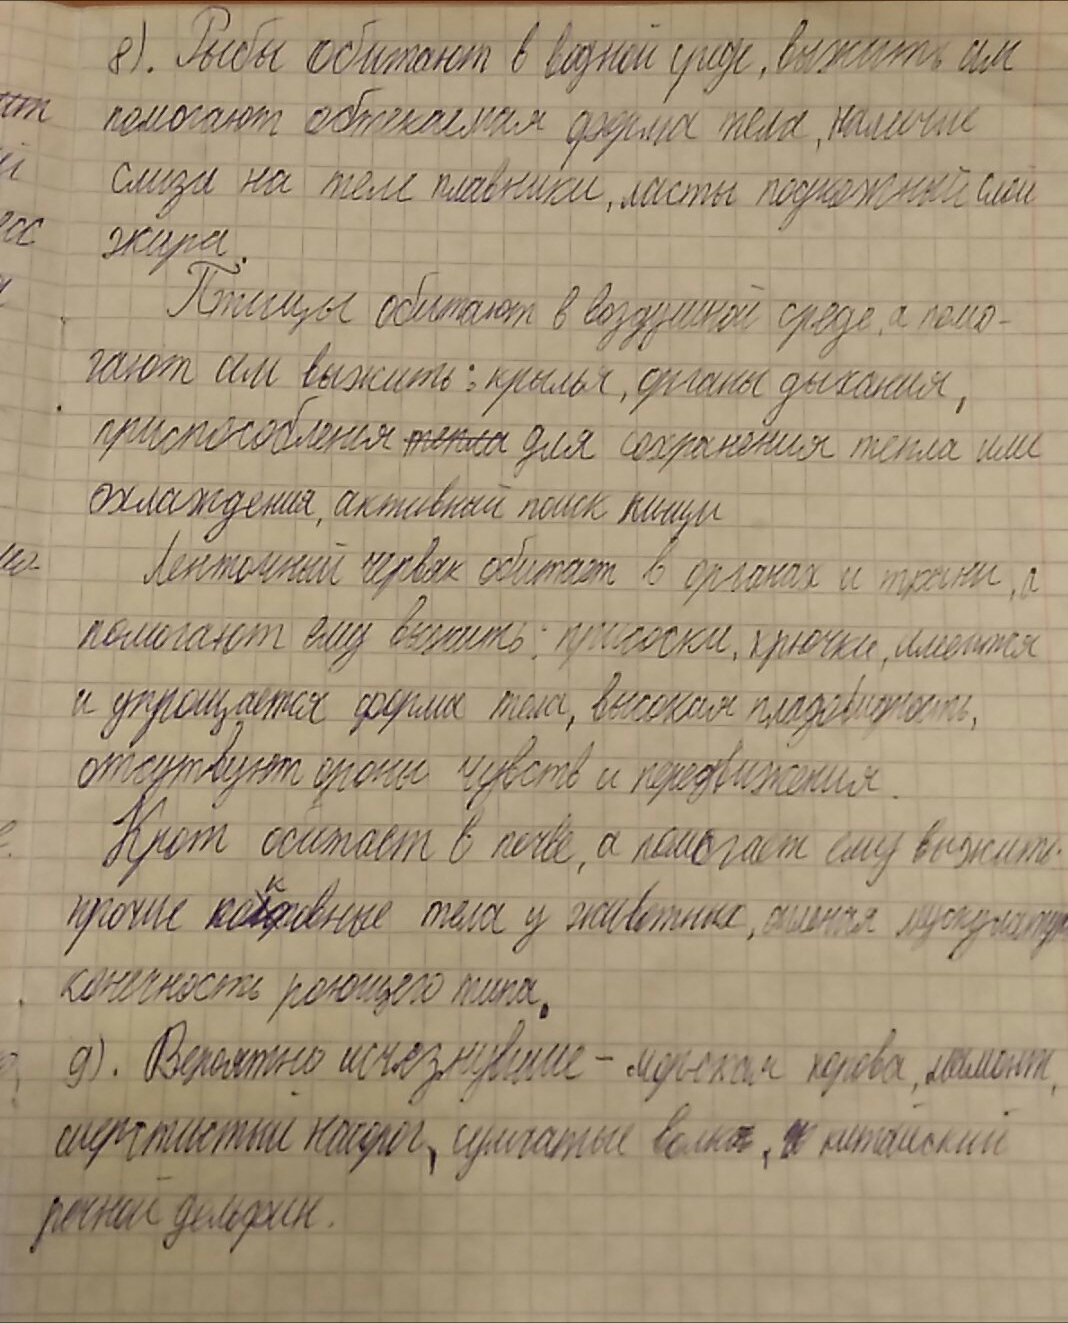 8). Рыбы обитают в водной среде, выжить им
помогают обтекаемая форма тела, наличие
слизи на теле плавники, ласты подкожный слой
жира.
Птицы обитают в воздушной среде, а помо-
гают им выжить: крылья, органы дыхания,
приспособления тепла для сохранения тепла или
охлаждения, активный поиск пищи
Ленточный червяк обитает в органах и ткани, а
помогают ему выжить: присоски, крючки, имеются
и упрощается форма тела, высокая плодовитость,
отсутвуют органы чувств и передвижения.
Крот обитает в почве, а помогает ему выжить
прочие тела у животных, сильная мускулатура
конечность роющего типа.
9). Вероятно исчезнувшие - морская корова, мамонт,
шерстистый носорог, сумчатые волк, китайский
речной дельфин.